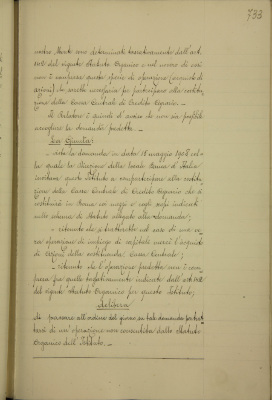 733
nostro Monte sono determinate tassativamente dall'art.
102 del vigente Statuto Organico e nel novero di essi
non è compresa questa specie di operazione (acquisto di
azioni) che sarebbe necessaria per partecipare alla costitu-
zione della Cassa Centrale di Credito Agrario. —
Il Relatore è quindi di avviso che non sia possibile
accogliere la domanda predetta. —
La Giunta:
— vista la domanda in data 18 maggio 1908 col-
la quale la Direzione della Banca di Italia
invita questo Istituto a compartecipare alla costitu-
zione della Cassa Centrale di Credito Agrario che si
costituirà in Roma coi mezzi e cogli scopi indicati
nello schema di Statuto allegato alla domanda;
— ritenuto che si tratterebbe nel caso di una ve-
ra operazione di impiego di capitale mercè l'acquisto
di azioni della costituenda Cassa Centrale;
— ritenuto che l'operazione predetta non è com-
presa fra quelle tassativamente indicate dall'art. 102
del vigente Statuto Organico per questo Istituto;
Delibera
di passare all'ordine del giorno su tale domanda perchè trat-
tasi di un'operazione non consentita dallo Statuto
Organico dell'Istituto. —